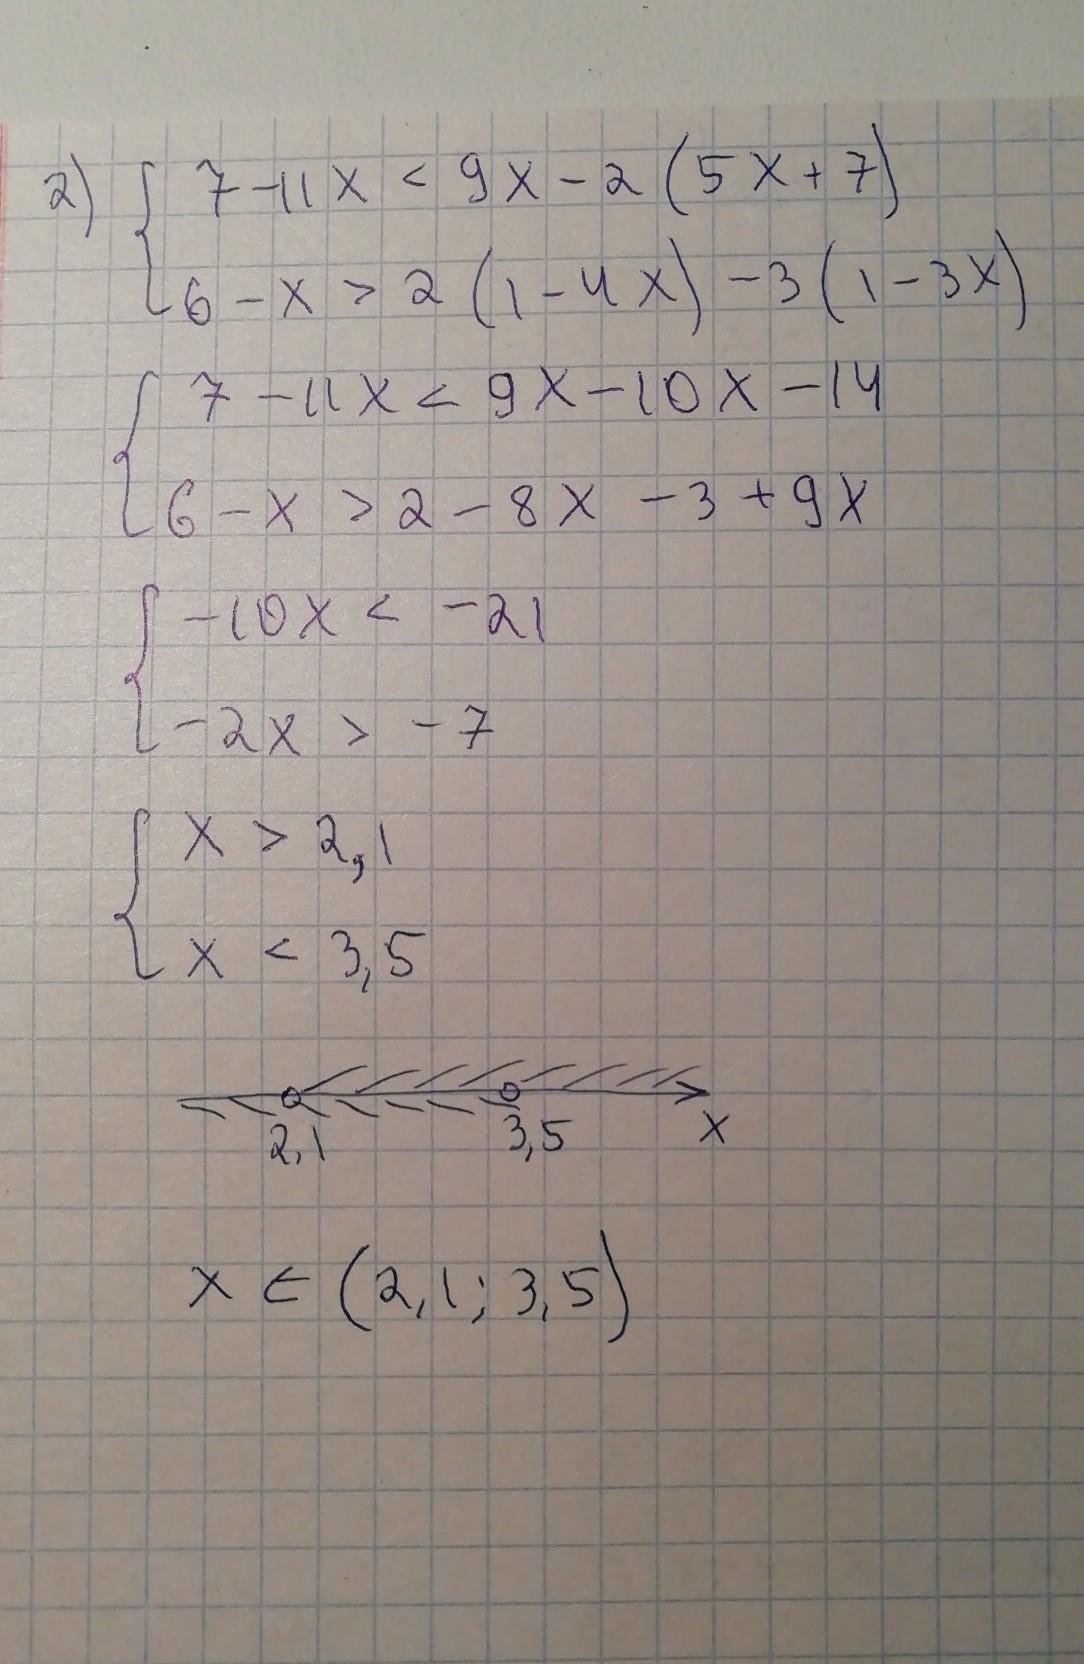 2) { 7 - 11x < 9x - 2 (5x + 7)
6 - x > 2 (1 - 4x) - 3 (1 - 3x)
{ 7 - 11x < 9x - 10x - 14
6 - x > 2 - 8x - 3 + 9x
{ -10x < -21
-2x > -7
{ x > 2,1
x < 3,5
2,1 3,5 x
x ∈ (2,1; 3,5)